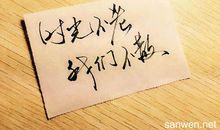 时光不老
我们不散
sanwen.net